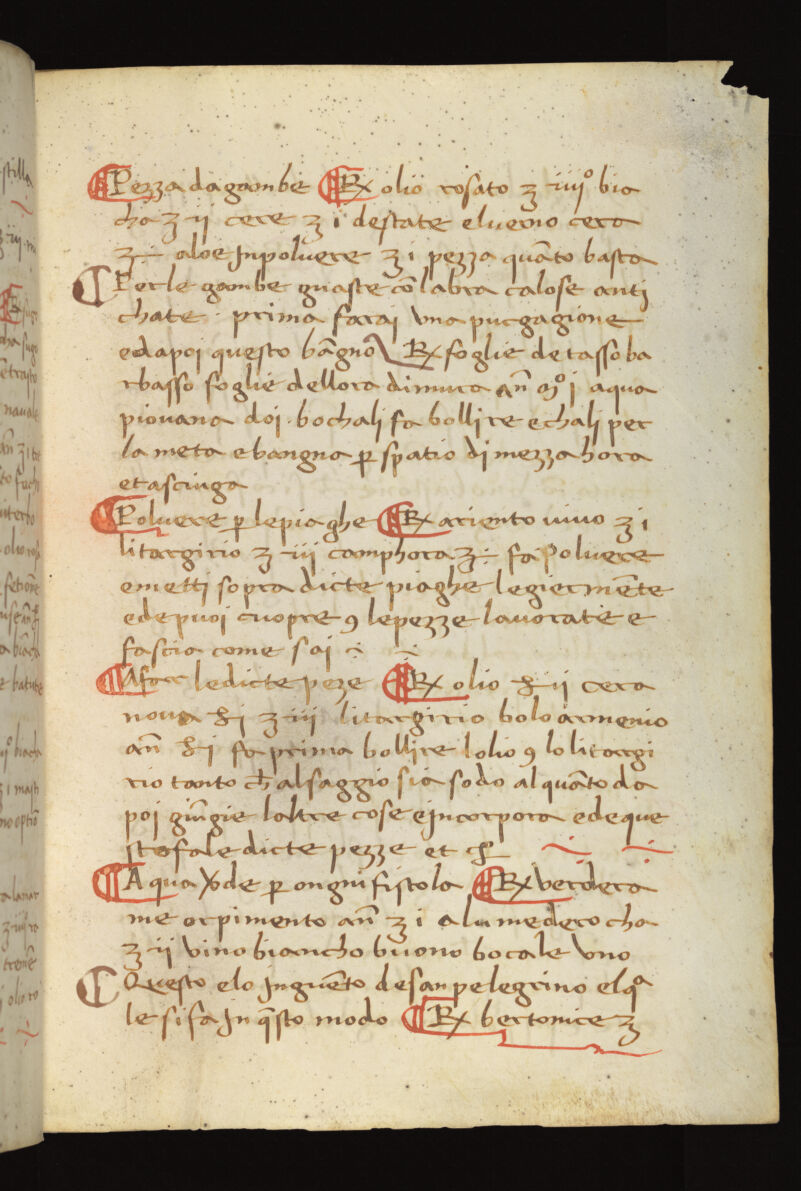 Pezza da gambe ℞ olio rosato ʒ iiijº bia
cha ʒ ij cere ʒ i destate eluerno cera
ʒ ÷ aloe Inpoluere ʒ i pezza quāto basta
Per le gambe guaste cō labra calose anti
chate · prima farai vna purgagione
edapoi questo bāgno ℞ foglie de tasso ba
rbasso foglie dellora di mura an̄ mº i aqua
piouana doi · bochali fa bollire e chali per
la meta e bangna ꝑ spatio di mezza hora
et asciuga
Poluere ꝑ le piaghe ℞ ariento uiuo ʒ i
litargirio ʒ iii camphora ʒ ÷ fa poluere
e metti sopra dicte piaghe legiermēte
ede puoi cuopre ꝯ le pezze lauorate e
fascia come sai
A far le dicte peze ℞ olio ℔ ij cera
noua ℔ i ʒ iii litargirio bolo armenio
an̄ ℔ i fa prima bollire lolio ꝯ lo litargi
rio tanto ch̄ al saggio sia sodo alquāto da
poi giūgie laltre cose e incorpora ede que
sto fa le dicte pezze et c̄
Aqua v̄de ꝑ ongni fistola ℞ verdera
me orpimento an̄ ʒ i alume de rocha
ʒ ij vino biancho buono bocale vno
Questo e lo Inguēto de san pelegrino el qᵃ
le si fa In q̄sto modo ℞ bertonice ʒ